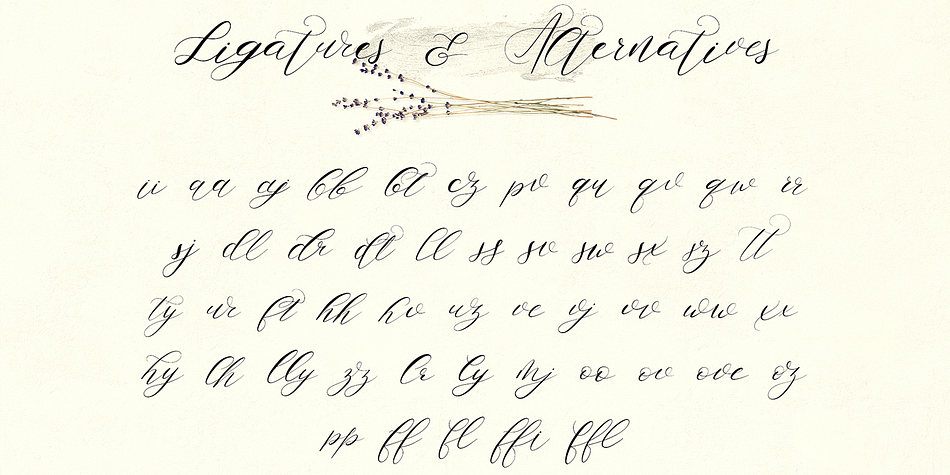 Ligatures & Alternatives
ii aa aj bb bt cz pv qu qv qw rr
sj dl dr dt ll ss sv sw sx sz tt
ty ur ft hh hv uz vc vj vv ww xx
hy lh lly zz lr ly nj oo ov ove oz
pp ff fl ffi ffl